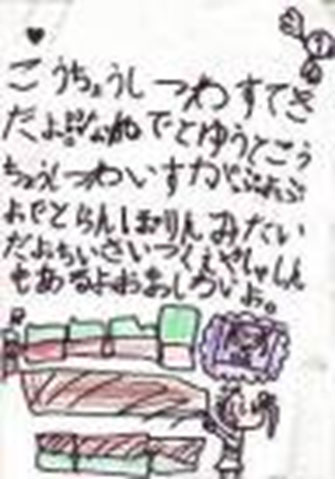 こうちょうしつわすてき
だよ!!なぜでとゆうとこう
ちょうしつわいすがぶよぶ
よでとらんぽりんみたい
だよちいさいつくえやしゃしん
もあるよおおしろいよ。